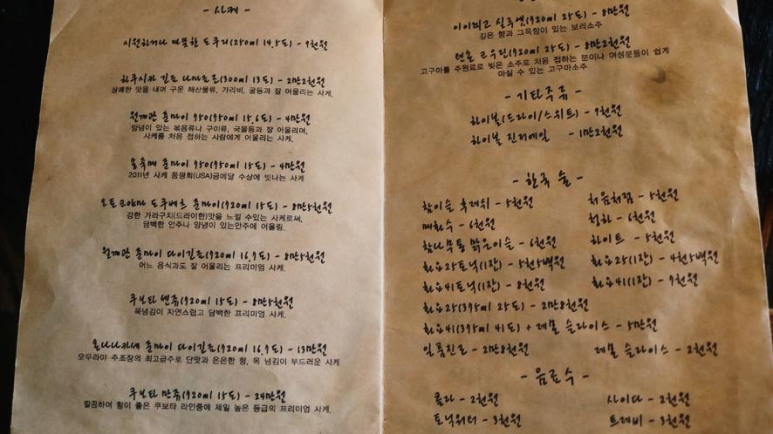 - 사케 -
시원하거나 따뜻한 도쿠리(250ml 14.5도) - 9천원
(300ml 13도) - 2만2천원
상쾌한 맛을 내며 구운 해산물류, 가리비, 굴등과 잘 어울리는 사케.
월계관 준마이 750(750ml 15.6도) - 4만원
양념이 있는 볶음류나 구이류, 국물등과 잘 어울리며,
사케를 처음 접하는 사람에게 어울리는 사케.
준마이 750(750ml 15도) - 4만원
2011년 사케 품평회(USA)금메달 수상에 빛나는 사케
오토코야마 토쿠베츠 준마이(920ml 15도) - 8만5천원
강한 가라구치(드라이한)맛을 느낄 수있는 사케로써,
담백한 안주나 양념이 있는안주에 어울림.
월계관 준마이 다이긴죠(920ml 16.9도) - 8만5천원
어느 음식과도 잘 어울리는 프리미엄 사케.
쿠보타 센쥬(920ml 15도) - 8만5천원
목넘김이 자연스럽고 담백한 프리미엄 사케.
준마이 다이긴죠(920ml 16.9도) - 13만원
양조장의 최고급주로 단맛과 은은한 향, 목 넘김이 부드러운 사케
쿠보타 만쥬(920ml 15도) - 24만원
깔끔하며 향이 좋은 쿠보타 라인중에 제일 높은 등급의 프리미엄 사케.
이이찌코 실루엣(920ml 25도) - 8만원
깊은 향과 그윽함이 있는 보리소주
(920ml 25도) - 8만2천원
고구마를 주원료로 빚은 소주로 처음 접하는 분이나 여성분들이 쉽게
마실 수 있는 고구마소주
- 기타주류 -
하이볼(드라이/스위트) - 9천원
하이볼 진저에일 - 1만2천원
- 한국 술 -
참이슬 후레쉬 - 5천원 처음처럼 - 5천원
매화수 - 6천원 청하 - 6천원
참나무통 맑은이슬 - 6천원 하이트 - 5천원
화요25토닉(1잔) - 5천5백원 화요25(1잔) - 4천5백원
화요41토닉(1잔) - 8천원 화요41(1잔) - 9천원
화요25(375ml 25도) - 2만8천원
화요41(375ml 41도) + 레몬 슬라이스 - 5만원
일품진로 - 2만8천원 레몬 슬라이스 - 2천원
- 음료수 -
콜라 - 2천원 사이다 - 2천원
토닉워터 - 3천원 트레비 - 3천원